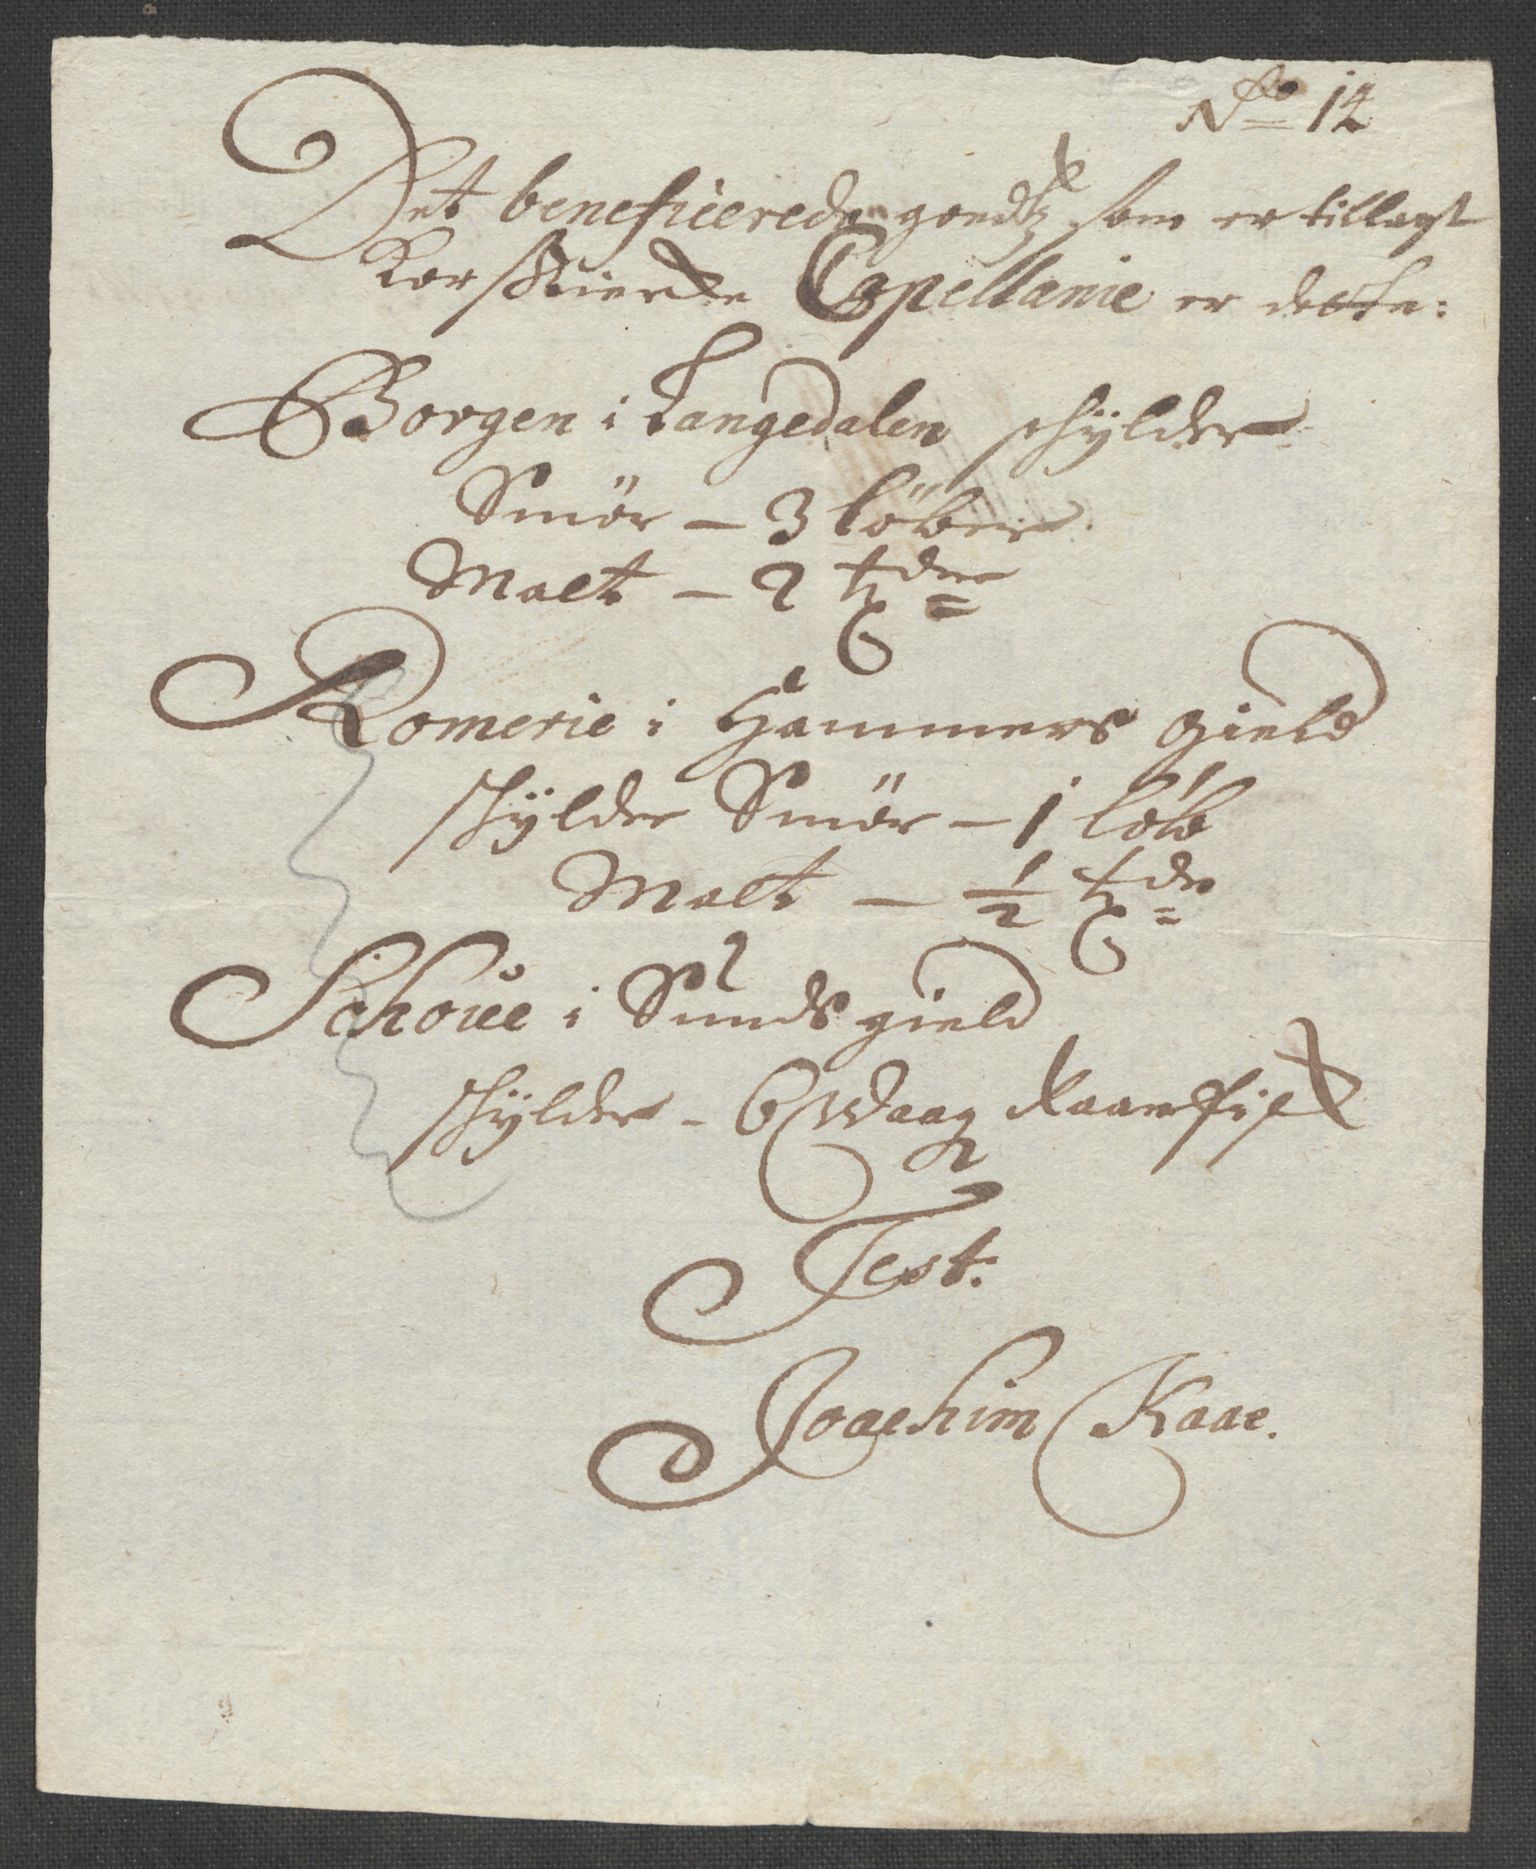 No 12
Det beneficerede goedtz som er tillagt
Korskierke Capellanie er dette:
Borgen i Langedalen schÿlder
Smör – 3 löber
Malt – 2 tdr
Romerie i Hammers gield
schÿlder Smör – 1 löb
Malt – ½ tdr
Schoue i Sunds gield
schÿlder – 6 Waag Raaefisk
Test.
Joachim Kaae.